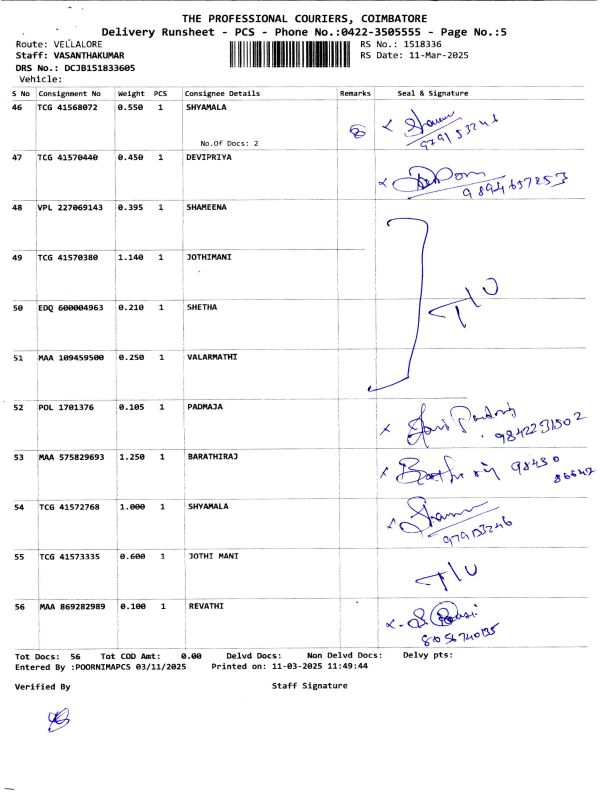 THE PROFESSIONAL COURIERS, COIMBATORE
Delivery Runsheet - PCS - Phone No.:0422-3505555 - Page No.:5
Route: VELLALORE RS No.: 1518336
Staff: VASANTHAKUMAR RS Date: 11-Mar-2025
DRS No.: DCJB151833605
Vehicle:
S No Consignment No Weight PCS Consignee Details Remarks Seal & Signature
46 TCG 41568072 0.550 1 SHYAMALA
No.Of Docs: 2
47 TCG 41570440 0.450 1 DEVIPRIYA
9894637253
48 VPL 227069143 0.395 1 SHAMEENA
49 TCG 41570380 1.140 1 JOTHIMANI
T/U
50 EDQ 600004963 0.210 1 SHETHA
51 MAA 109459500 0.250 1 VALARMATHI
52 POL 1701376 0.105 1 PADMAJA
9842231502
53 MAA 575829693 1.250 1 BARATHIRAJ
54 TCG 41572768 1.000 1 SHYAMALA
55 TCG 41573335 0.600 1 JOTHI MANI
T/U
56 MAA 869282989 0.100 1 REVATHI
8056740135
Tot Docs: 56 Tot COD Amt: 0.00 Delvd Docs: Non Delvd Docs: Delvy pts:
Entered By :POORNIMAPCS 03/11/2025 Printed on: 11-03-2025 11:49:44
Verified By Staff Signature